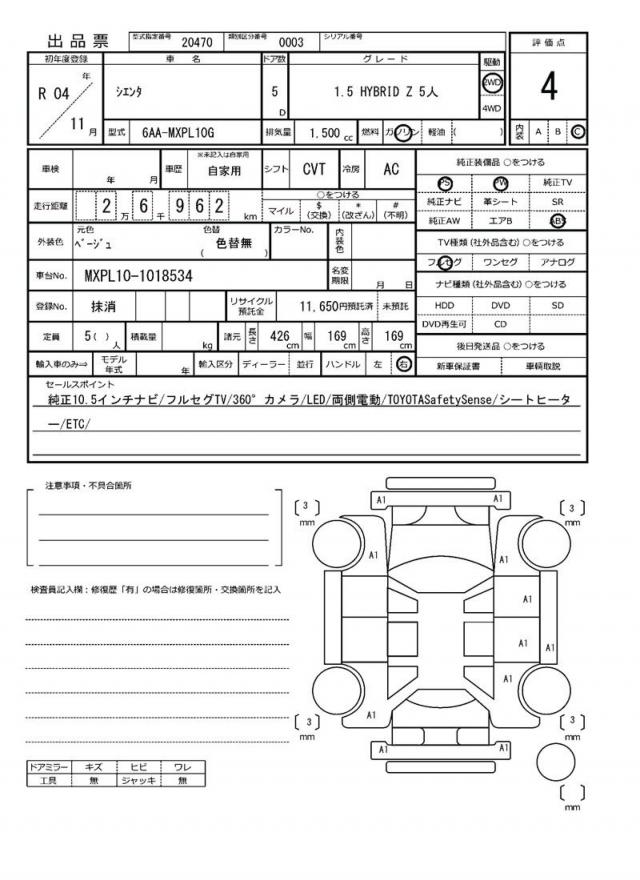 出品票 型式指定番号 20470 類別区分番号 0003 シリアル番号
評価点
4
内装 A B C
初年度登録 車名 ドア数 グレード 駆動
R 04 年 11 月 シエンタ 5 D 1.5 HYBRID Z 5人 2WD
4WD
型式 6AA-MXPL10G 排気量 1,500 cc 燃料 ガソリン 軽油 ( )
車検 年 月 車歴 ※未記入は自家用 自家用 シフト CVT 冷房 AC
走行距離 2万 6千 9 6 2 km
○をつける
マイル $(交換) *(改ざん) #(不明)
外装色 元色 ベージュ 色替 ( 色替無 ) カラーNo. 内装色
車台No. MXPL10-1018534 名変期限 月 日
登録No. 抹消 リサイクル預託金 11,650円預託済 未預託
定員 5( )人 積載量 kg 諸元 長さ 426 cm 幅 169 cm 高さ 169 cm
輸入車のみ⇒ モデル年式 年 輸入区分 ディーラー 並行 ハンドル 左 右
純正装備品 ○をつける
PS PW 純正TV
純正ナビ 革シート SR
純正AW エアB ABS
TV種類(社外品含む)○をつける
フルセグ ワンセグ アナログ
ナビ種類(社外品含む)○をつける
HDD DVD SD
DVD再生可 CD
後日発送品 ○をつける
新車保証書 車輌取説
セールスポイント
純正10.5インチナビ/フルセグTV/360°カメラ/LED/両側電動/TOYOTASafetySense/シートヒータ
ー/ETC/
注意事項・不具合箇所
検査員記入欄:修復歴「有」の場合は修復箇所・交換箇所を記入
ドアミラー キズ ヒビ ワレ
工具 無 ジャッキ 無
A1 A1
[ 3 ] mm [ 3 ] mm
A1 A1
A1
A1 A1
A1
A1
[ 3 ] mm [ 3 ] mm
A1 A1
[ ] mm